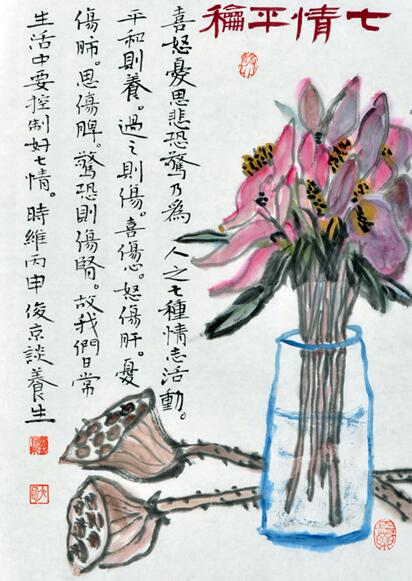 七情平稳
喜怒憂思悲恐驚乃為人之七種情志活動。
平和則養。過之則傷。喜傷心。怒傷肝。憂
傷肺。思傷脾。驚恐則傷腎。故我們日常
生活中要控制好七情。時維丙申俊京談養生